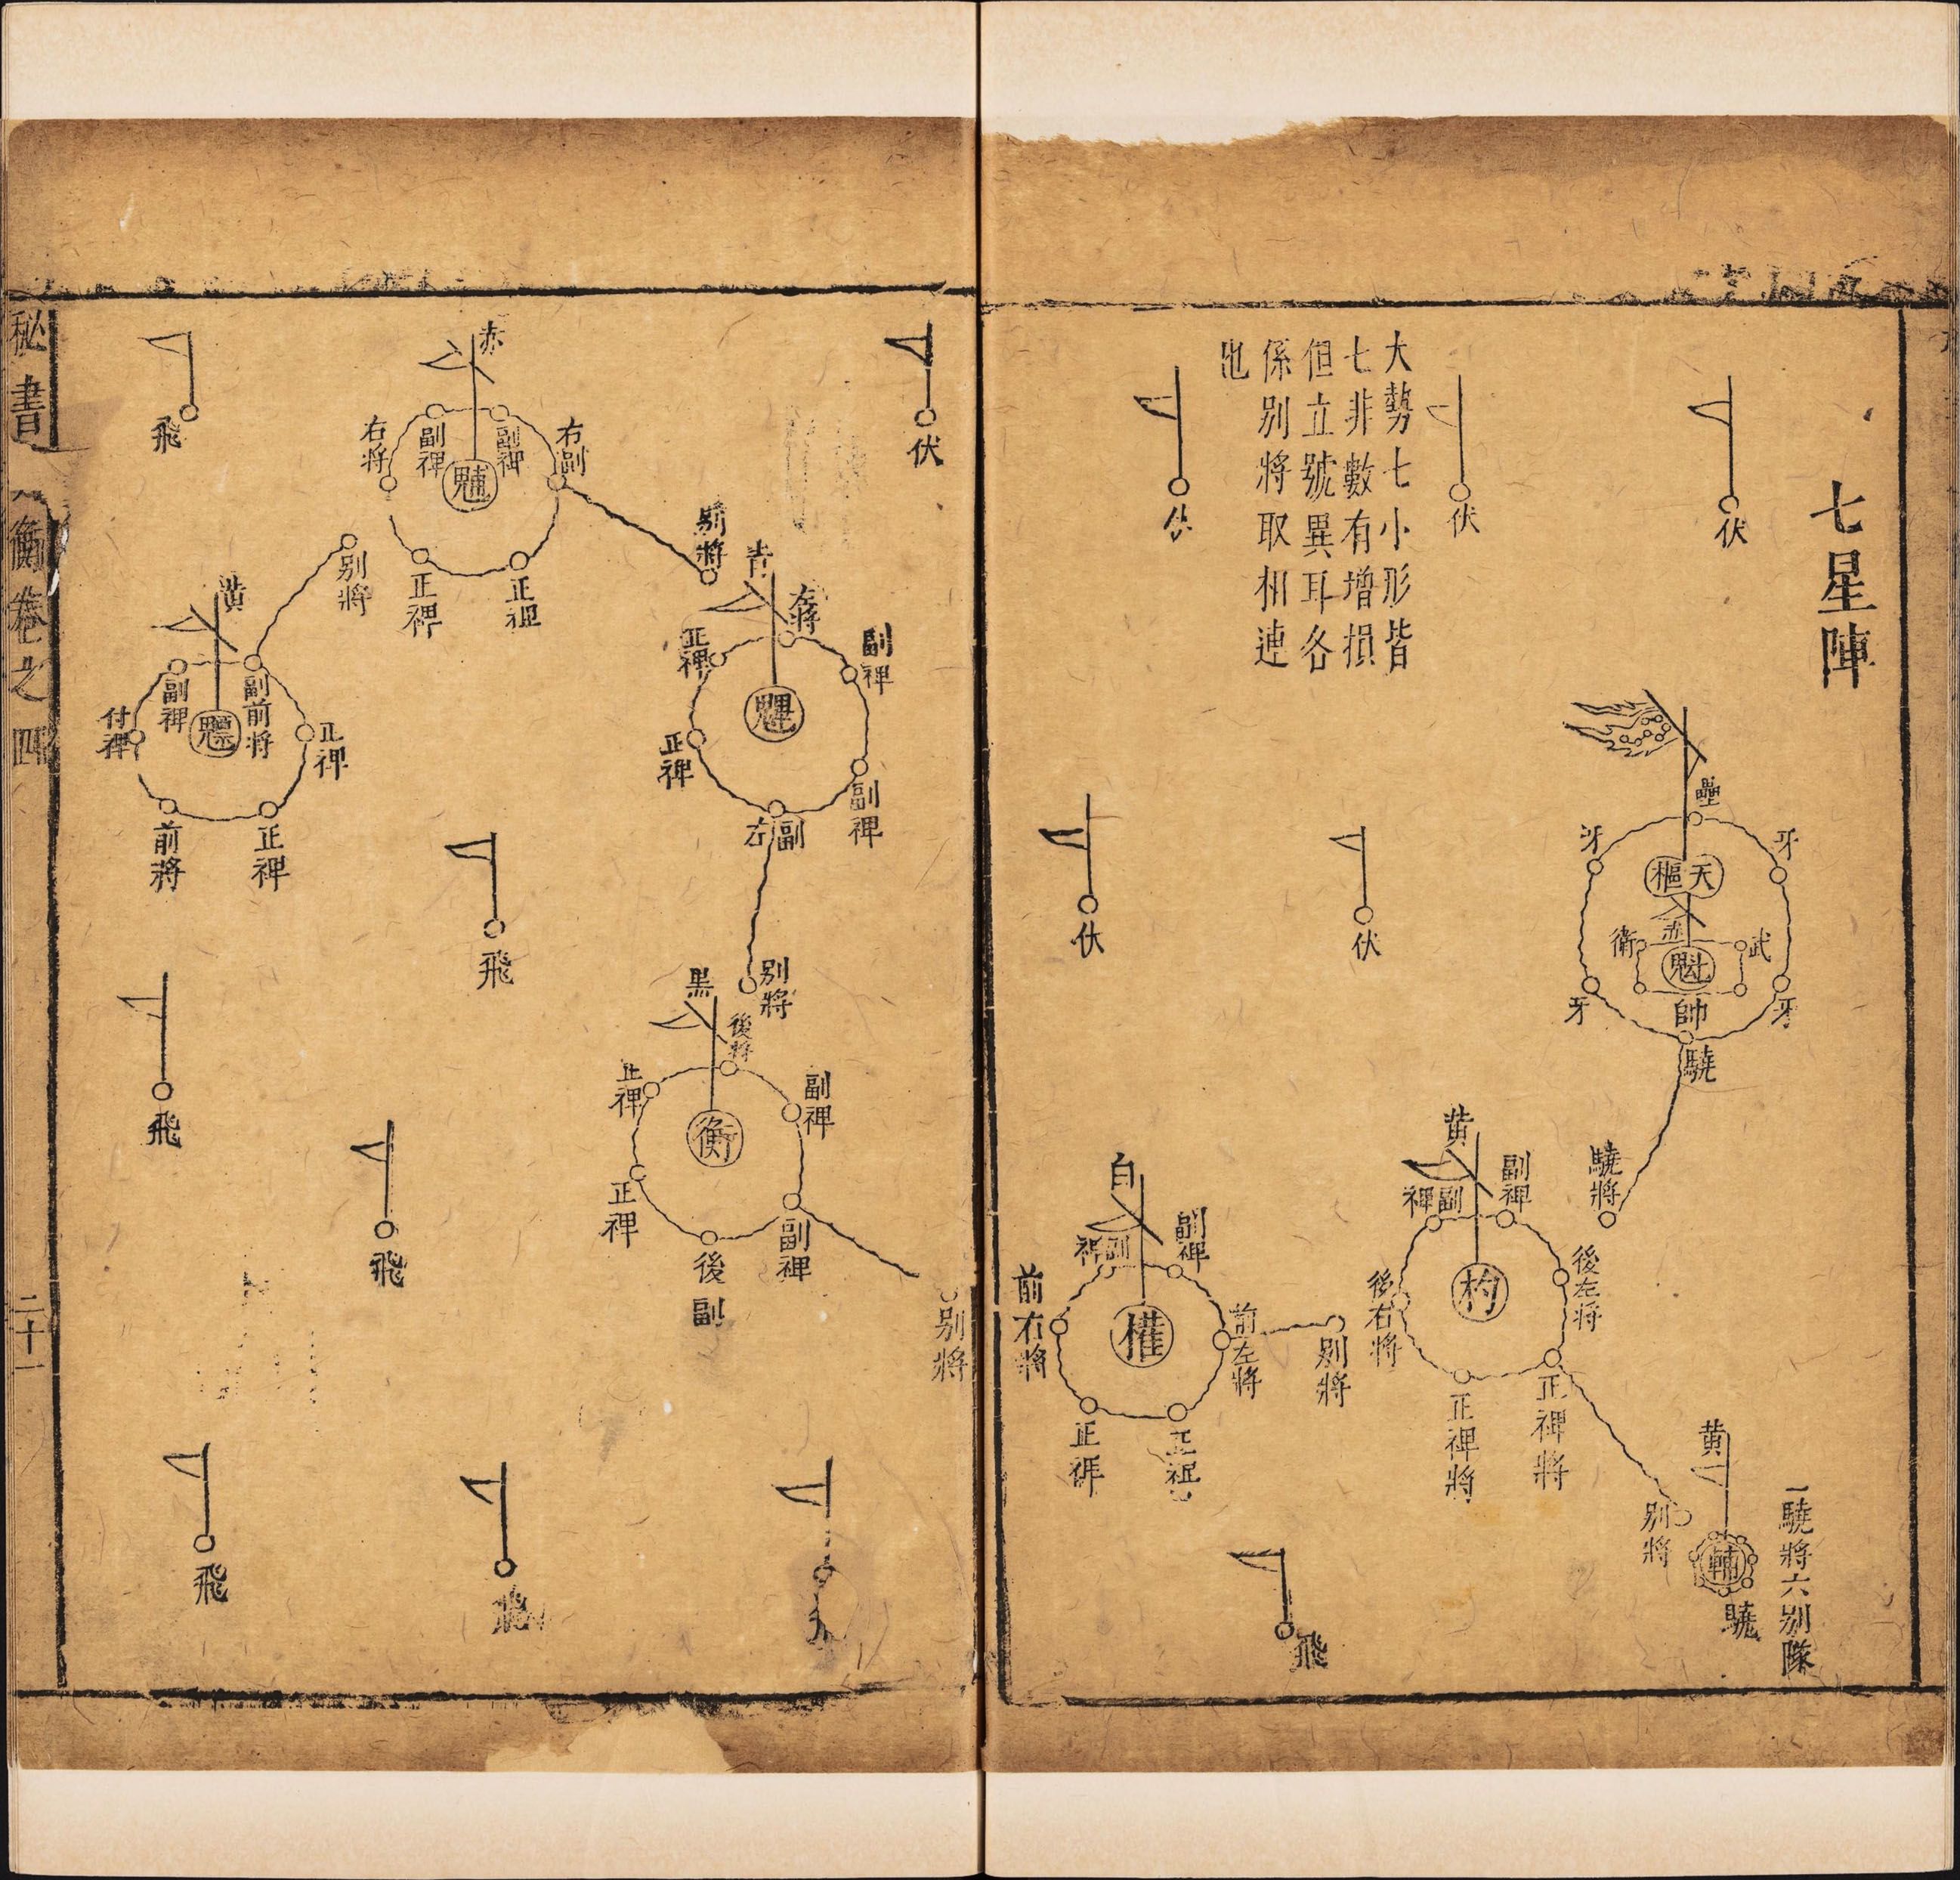 七星陣
大勢七小形皆
七非數有增損
但立號異耳各
係別將取相連
也
伏
伏
伏
伏
伏
壘
牙
牙
天樞
赤
武
衛
帥
牙
牙
驍
驍將
黃
副裨
副裨
杓
後左將
後右將
正裨將
正裨將
別將
黃
輔
驍
一驍將六別隊
白
副裨
副裨
權
前左將
前右將
別將
正裨
正裨
飛
伏
赤
右副
副裨
副裨
右將
正裨
正裨
別將
青
左將
副裨
正裨
正裨
副裨
左副
別將
黑
後將
副裨
正裨
衡
正裨
副裨
後副
別將
別將
黃
副前將
副裨
付裨
正裨
正裨
前將
飛
飛
飛
飛
飛
飛
秘書
衡卷之四
二十一